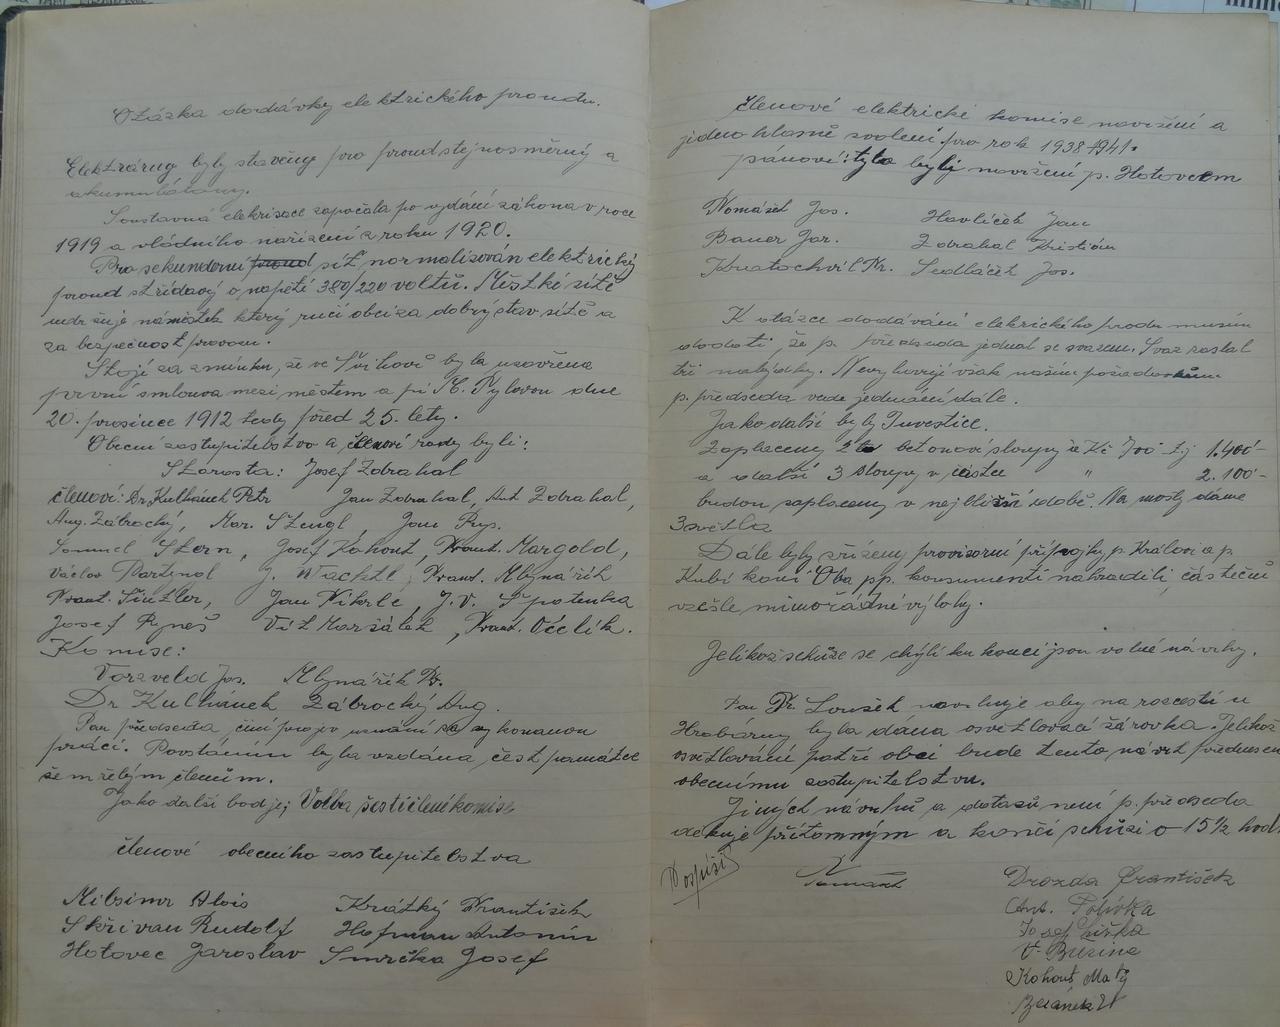 Otázka dodávky elektrického proudu.
Elektrárny byly stavěny pro proud stejnosměrný a
akumulátory.
Soustavná elekrisace započala po vydání zákona v roce
1919 a vládního nařízení z roku 1920.
Pro sekunderní proud síť normalisován elektrický
proud střídavý o napětí 380/220 voltů. Městké sítě
udržuje náměstek který ručí obci za dobrý stav sítě a
za bezpečnost provozu.
Stojí za zmínku, že ve Švihově byla uzavřena
první smlouva mezi městem a fi K. Pylovou dne
20. prosince 1912 tedy před 25. lety.
Obecní zastupitelstvo a členové rady byli:
Starosta: Josef Zdrahal
členové: Dr. Kulhánek Petr Jan Zdrahal, Ant Zdrahal,
Aug. Zábrocký, Mar. Stengl, Jan Prys.
Samuel Stern, Josef Kohout, Frant. Margold,
Václav Partyngl J. Wachtl, Frant. Mlynářík
Frant. Šintler, Jan Vikrle, J.V. Špatenka
Josef Ryneš Vít Maršálek, Frant. Včelík.
Komise:
Vorzveld Jos. Mlynářík Fr.
Dr Kulhánek Zábrocký Aug.
Pan předseda, činí projev uznání za vykonanou
práci. Povstáním byla vzdána čest památce
zemřelým členům.
Jako další bod je; Volba šestičlené komise
členové obecního zastupitelstva
Milsimr Alois Krátký František
Skřivan Rudolf Hofman Antonín
Hotovec Jaroslav Smrčka Josef
členové elektrické komise navrženi a
jednohlasně zvoleni pro rok 1938-1941.
pánové: tyto byly navrženi p. Hotovcem
Tomášek Jos. Havlíček Jan
Bauer Jar. Zdrahal Kristián
Kratochvíl Fr. Sedláček Jos.
K otázce dodávání elektrického produ musím
dodati, že p. předseda jednal se svazem. Svaz zaslal
tři nabídky. Nevyhovují však našim požadavkům
p. předseda vede jednání dále.
Jako další byly Investice.
Zaplaceny 2 betonové sloupy à Kč 700 tj 1.400-
a další 3 sloupy v částce " 2.100-
budou zaplaceny v nejbližší době. Na mosty dáme
3 světla
Dále byly zřízeny provisorní přípojky p. Královi a p
Kubíkovi Oba pp. konsumenti nahradili částečně
vzešlé mimořádné výlohy.
Jelikož schůze se chýlí ku konci jsou volné návrhy.
Pan Fr. Loušek navrhuje aby na rozcestí u
Hrabárny byla dána osvětlovací žárovka. Jelikož
osvětlování patří obci bude tento návrh přednesen
obecnímu zastupitelstvu.
Jiných návrhů a dotazů není p. předseda
děkuje přítomným a končí schůzi o 15½ hod.
Pospíšil Tomášek Drozda František
Ant. Polívka
Josef Žižka
V. Březina
Kohout Matěj